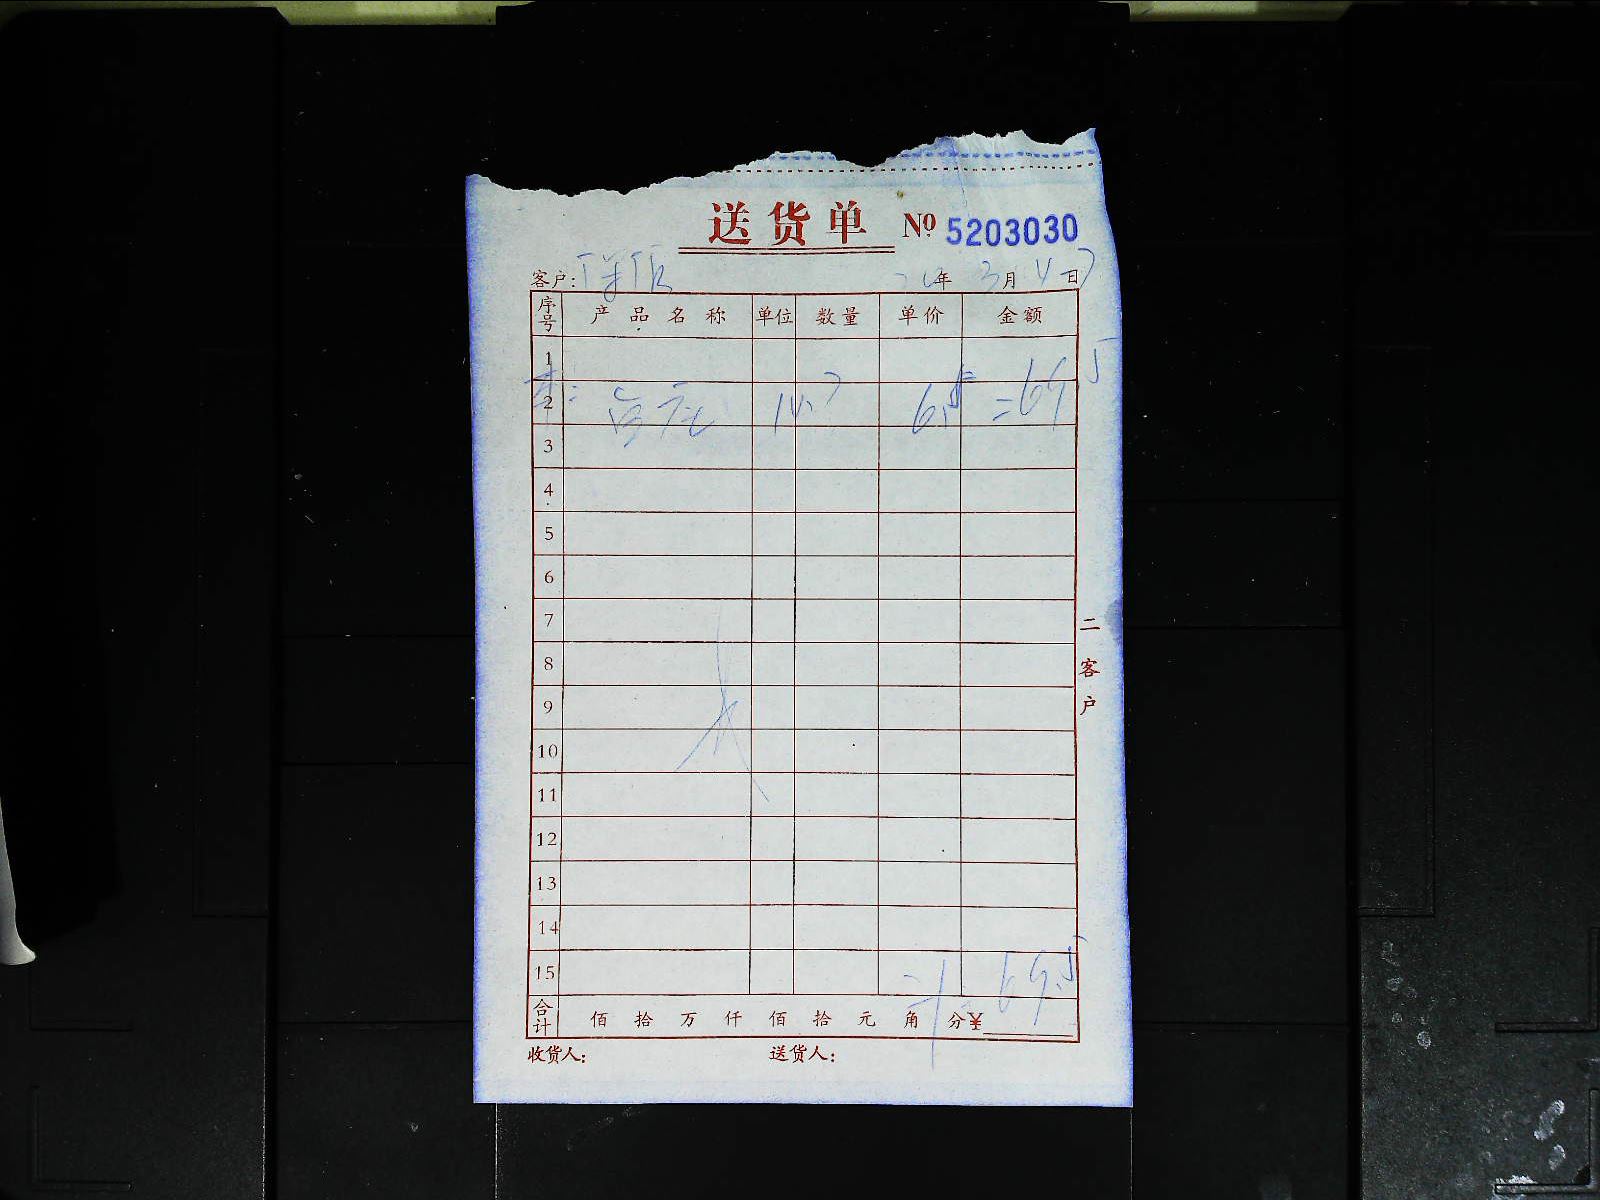 送货单 № 5203030
客户: 年 3月 日
序号 产品名称 单位 数量 单价 金额
1
2 6.5 =69.5
3
4
5
6
7
8
9
10
11
12
13
14
15 69.5
合计 佰 拾 万 仟 佰 拾 元 角 分¥
收货人: 送货人:
二客户